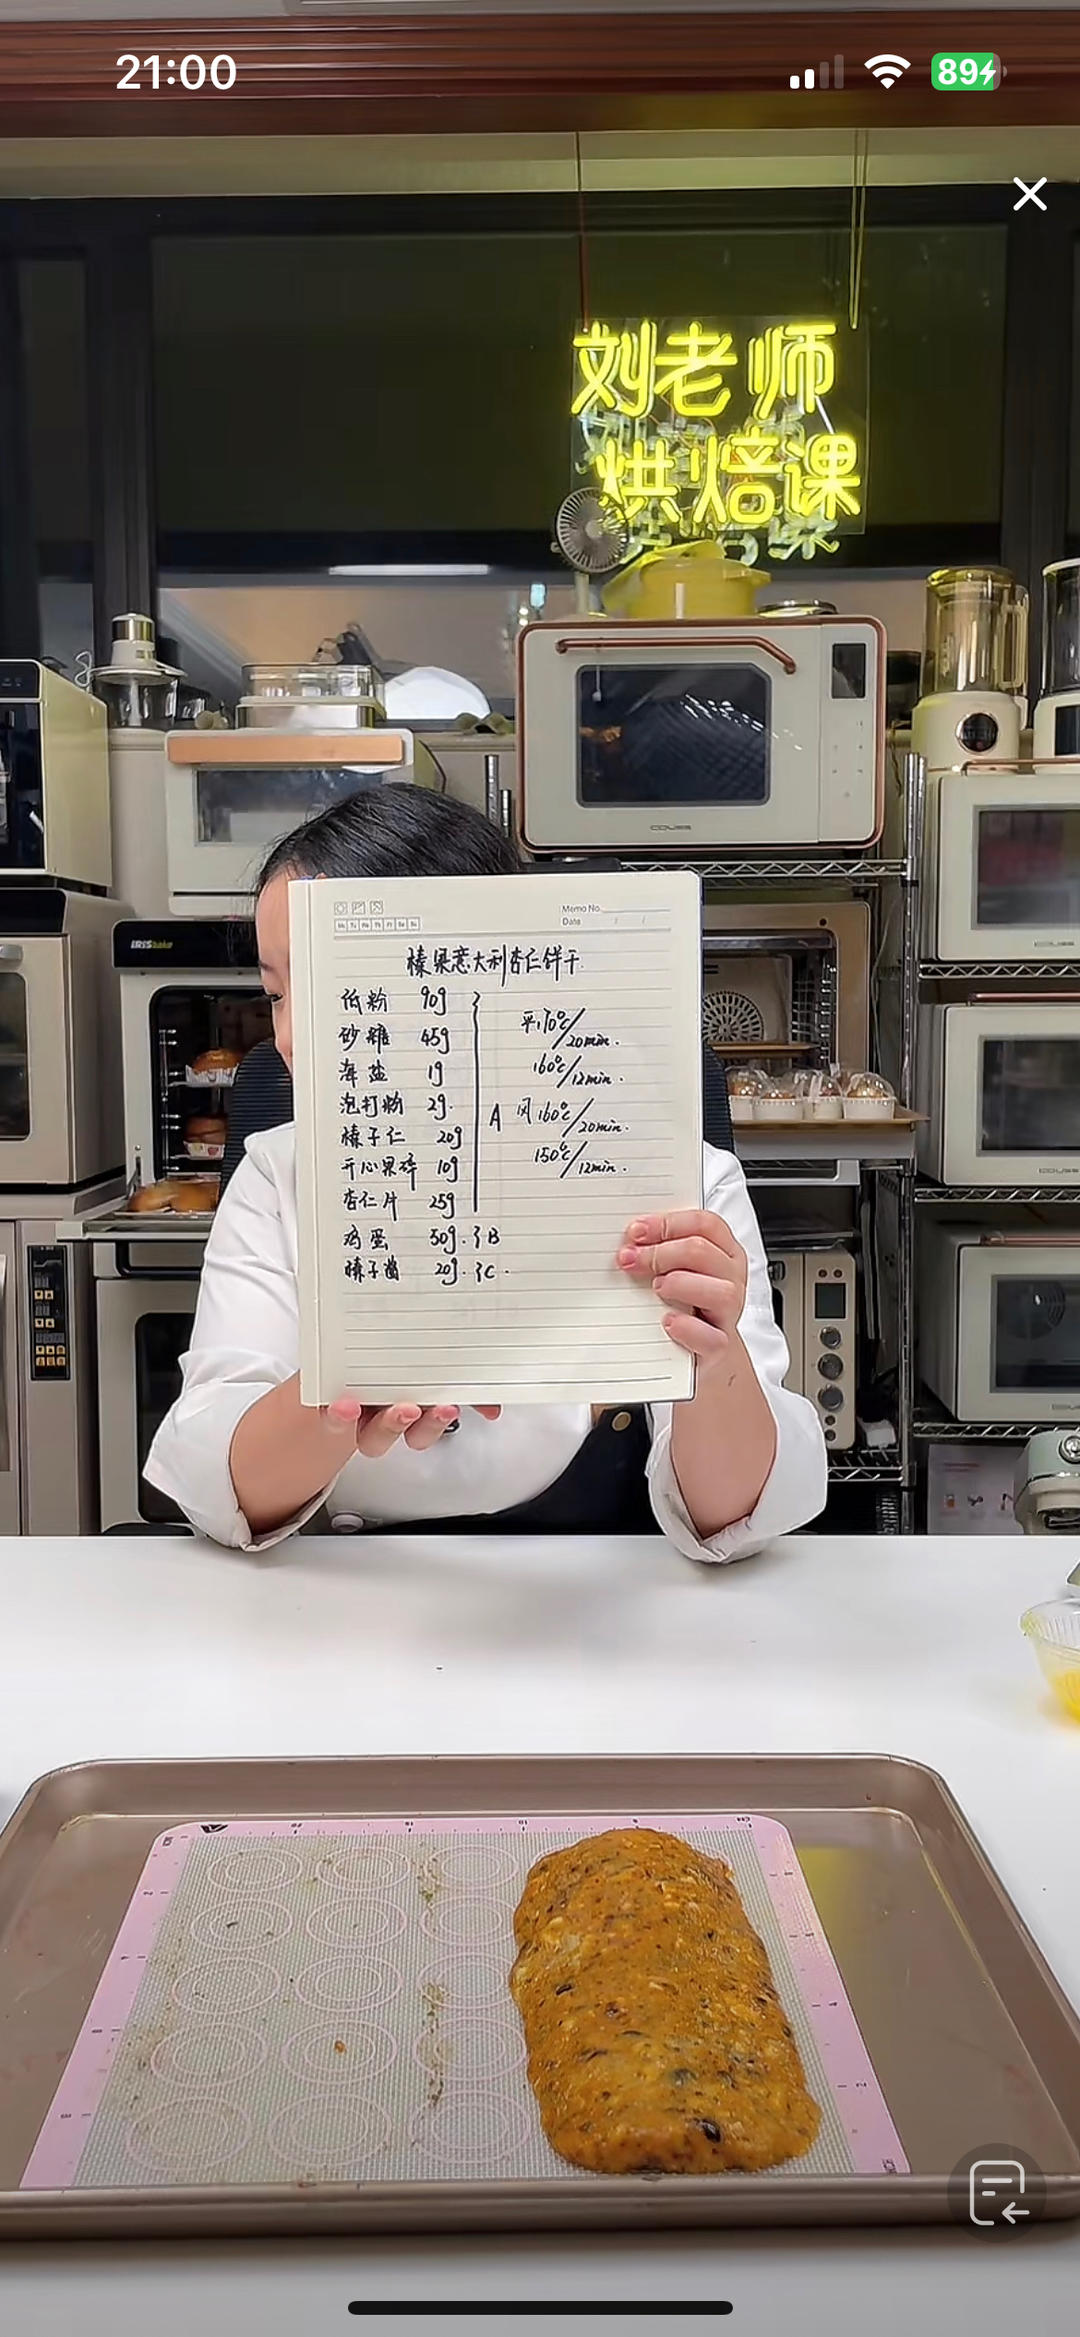 21:00
89
刘老师
烘焙课
COUSS
Memo No.
Date
Mo Tu We Th Fr Sa Su
榛果意大利杏仁饼干
低粉 90g
砂糖 45g
海盐 1g
泡打粉 2g.
榛子仁 20g
开心果碎 10g
杏仁片 25g
A
平170℃/20min.
160℃/12min.
风160℃/20min.
150℃/12min.
鸡蛋 50g. }B
榛子酱 20g. }C.